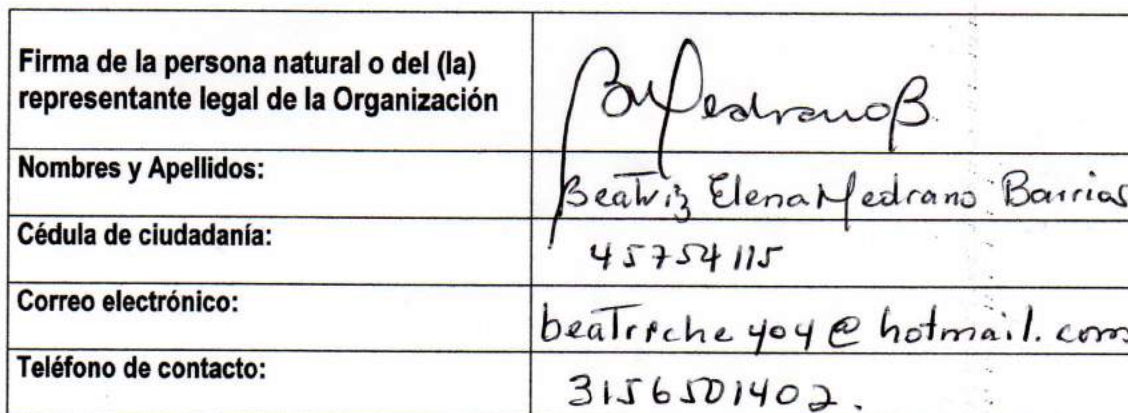 Firma de la persona natural o del (la)
representante legal de la Organización
BMedranoB
Nombres y Apellidos:
Beatriz Elena Medrano Barrias
Cédula de ciudadanía:
45754115
Correo electrónico:
beatriche404@hotmail.com
Teléfono de contacto:
3156501402.